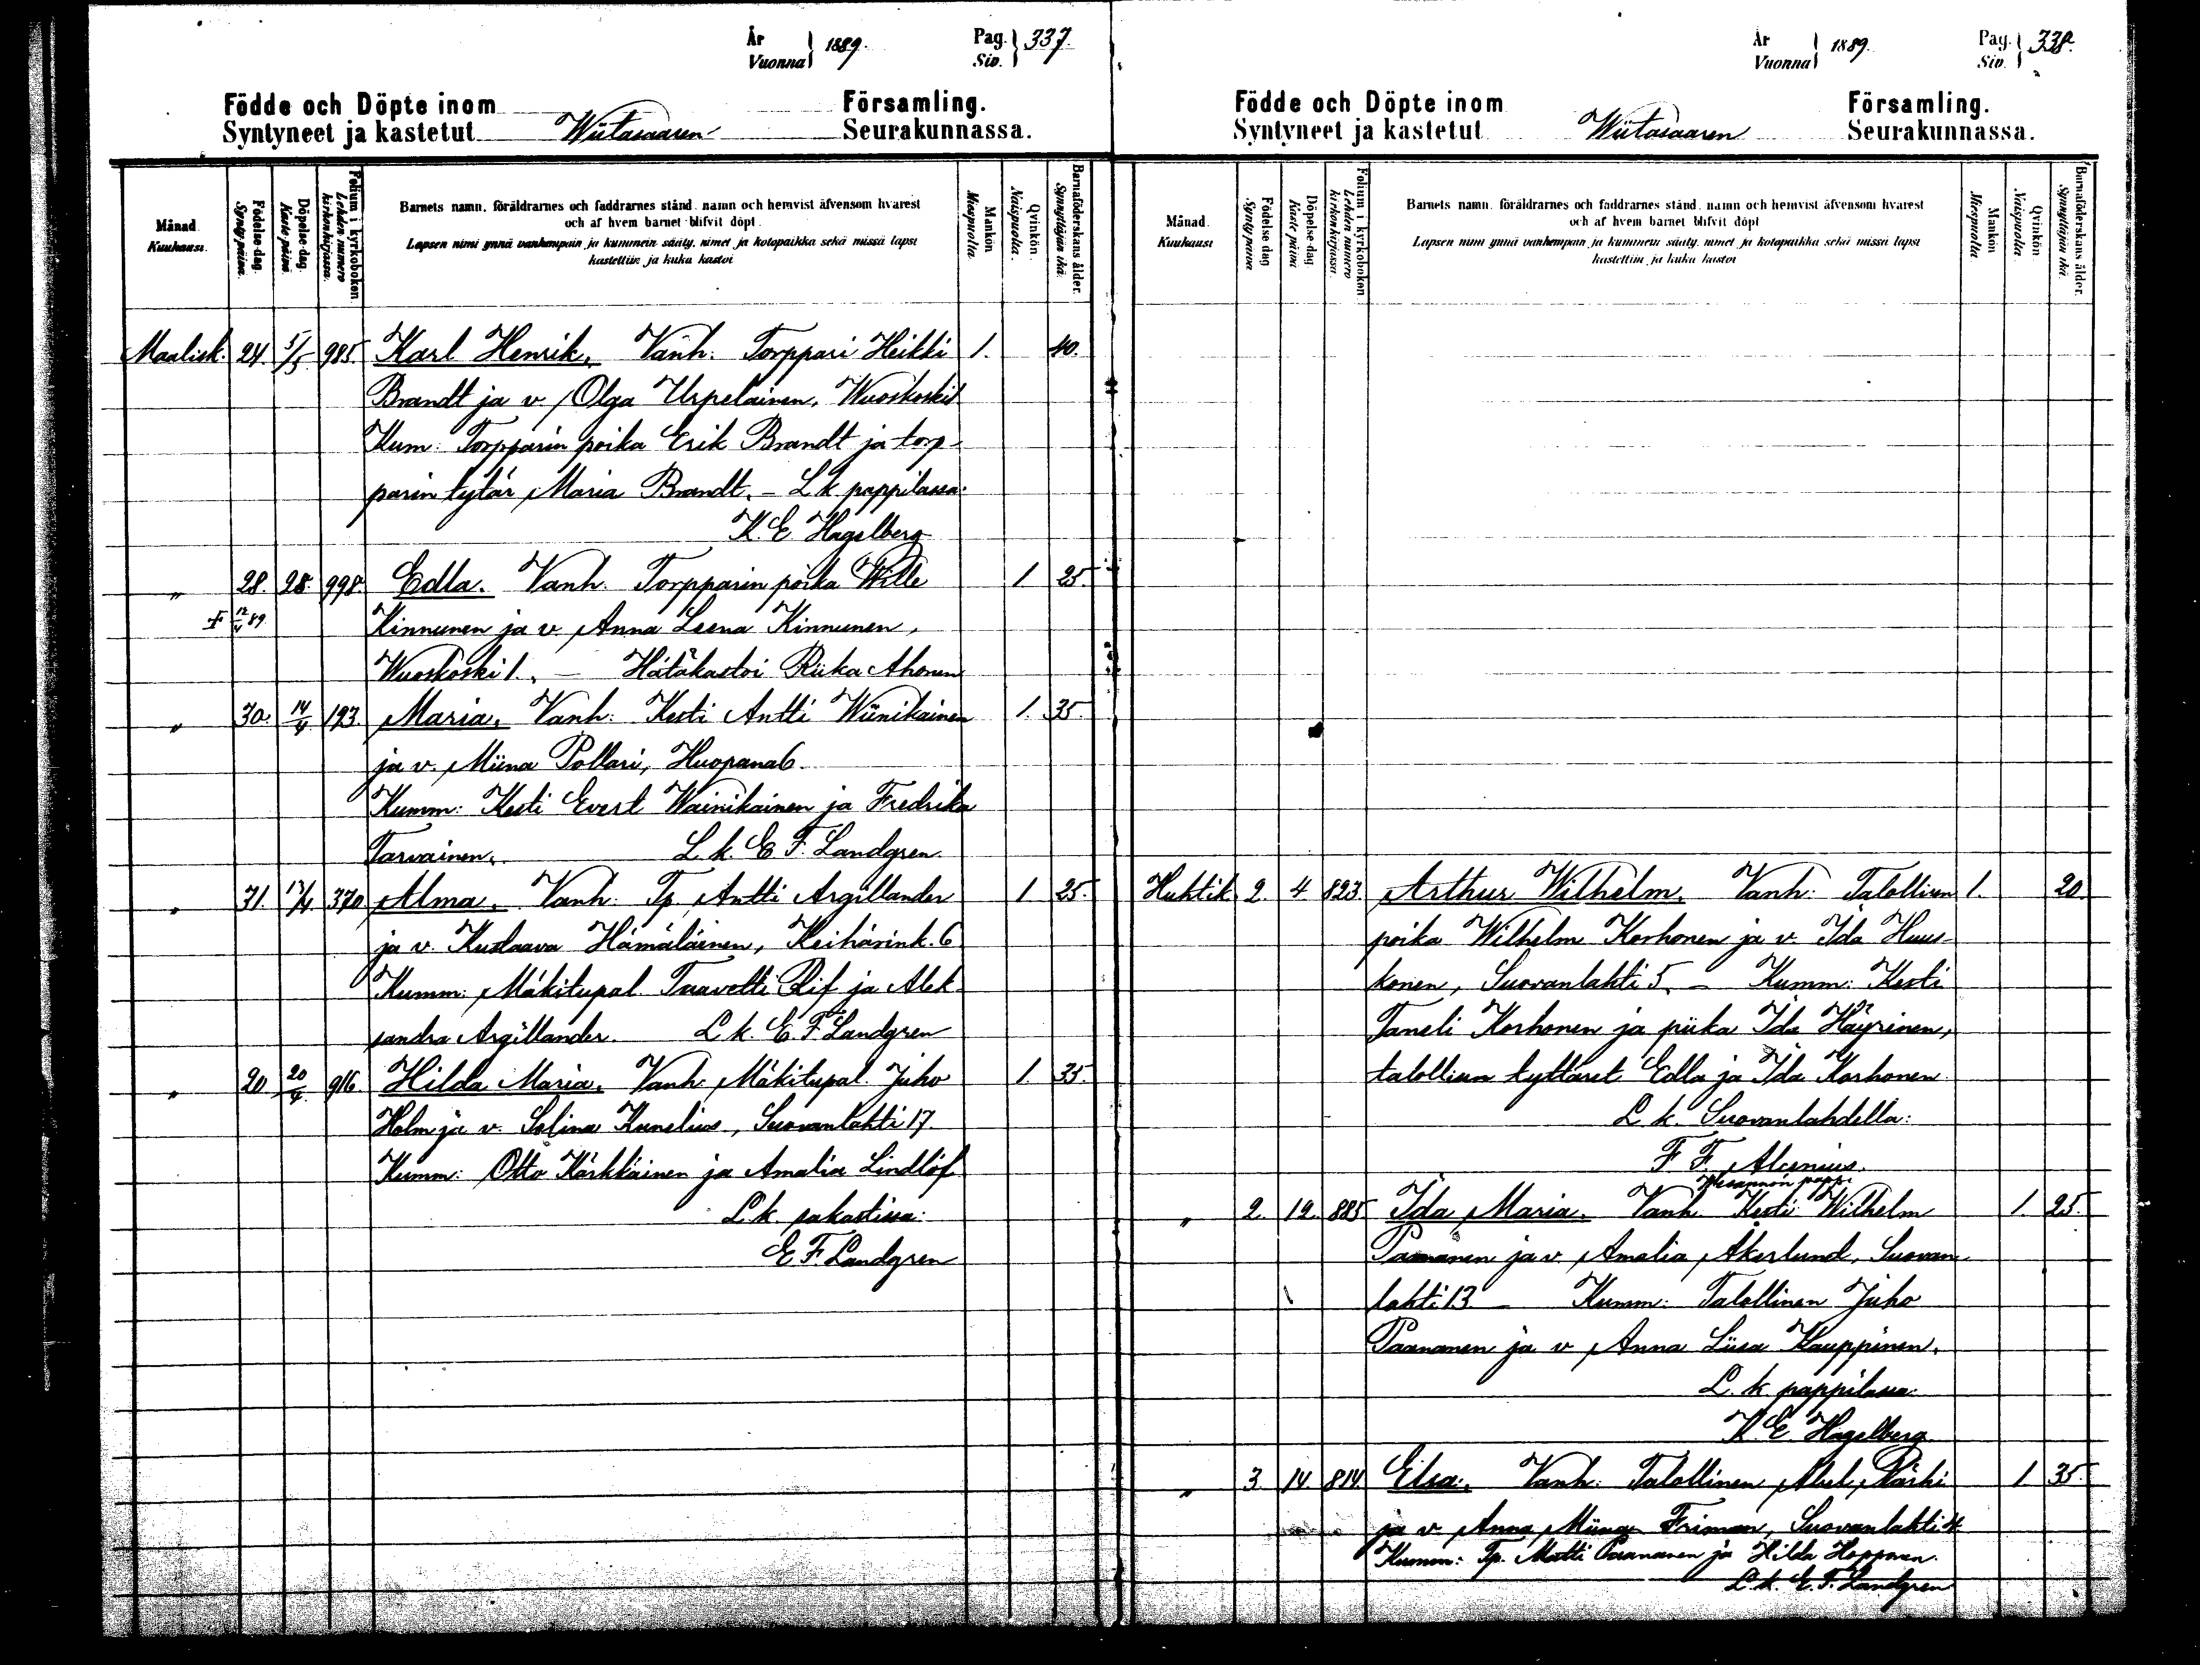 År Vuonna 1889. Pag. Siv. 337.
Födde och Döpte inom Församling.
Syntyneet ja kastetut Wiitasaaren Seurakunnassa.
Månad. Kuukausi.
Födelse dag. Synty päivä.
Döpelse dag. Kaste päivä.
Folium i kyrkoboken Lehden numero kirkonkirjassa.
Barnets namn, föräldrarnes och faddrarnes stånd, namn och hemvist äfvensom hvarest
och af hvem barnet blifvit döpt.
Lapsen nimi ynnä vanhempain ja kummein sääty, nimet ja kotopaikka sekä missä lapsi
kastettiin ja kuka kastoi
Mankön Miespuolta.
Qvinkön. Naispuolta.
Barnaföderskans ålder. Synnyttäjän ikä.
Maalisk. 24. 5/5 985. Karl Henrik, Vanh. Torppari Heikki 1. 40.
Brandt ja v. Olga Urpelainen, Wuoskoski
Kum: Torpparin poika Erik Brandt ja torp-
parin tytär Maria Brandt. – L. k. pappilassa:
K. E. Hagelberg
„ 28. 28. 998. Edla. Vanh. Torpparin poika Wille 1 25.
+ 12/4 89 Kinnunen ja v. Anna Leena Kinnunen,
Wuoskoski 1. – Hätäkastoi Riika Ahonen
„ 30. 14/4 123. Maria, Vanh: Kesti Antti Wiinikainen 1. 35.
ja v. Miina Pollari, Huopana 6.
Kumm: Kesti Evert Wainikainen ja Fredrika
Tarvainen. L. k. E. F. Landgren.
„ 31. 13/4 370 Alma, Vanh: Tp. Antti Argillander 1 25.
ja v. Kustaava Hämäläinen, Keihärink. 6
Kumm: Mäkitupal. Taavetti Rif ja Alek-
sandra Argillander. L. k. E. F. Landgren
„ 20 20/4 916. Hilda Maria, Vanh: Mäkitupal. Juho 1. 35.
Holm ja v. Selina Kunelius, Suovanlahti 17.
Kumm: Otto Kärkkäinen ja Amalia Lindlöf
L. k. sakastissa:
E. F. Landgren
År Vuonna 1889. Pag. Siv. 338.
Födde och Döpte inom Församling.
Syntyneet ja kastetut Wiitasaaren Seurakunnassa.
Månad. Kuukausi
Födelse dag Synty päivä
Döpelse dag. Kaste päivä
Folium i kyrkoboken Lehden numero kirkonkirjassa.
Barnets namn, föräldrarnes och faddrarnes stånd, namn och hemvist äfvensom hvarest
och af hvem barnet blifvit döpt
Lapsen nimi ynnä vanhempain ja kummein sääty, nimet ja kotopaikka sekä missä lapsi
kastettiin ja kuka kastoi
Mankön Miespuolta
Qvinkön. Naispuolta.
Barnaföderskans ålder. Synnyttäjän ikä.
Huhtik. 2. 4. 823. Arthur Wilhelm, Vanh: Talollisen 1. 20.
poika Wilhelm Korhonen ja v. Ida Huus-
konen, Suovanlahti 5. – Kumm: Kesti
Taneli Korhonen ja piika Ida Häyrinen,
talollisen tyttäret Edla ja Ida Korhonen
L. k. Suovanlahdella:
F. F. Alcenius.
Wesannon pappi
„ 2. 12. 885. Ida Maria. Vanh Kesti Wilhelm 1. 25.
Paananen ja v. Amalia Åkerlund, Suovan-
lahti 13. – Kumm: Talollinen Juho
Paananen ja v Anna Liisa Kauppinen.
L. k. pappilassa:
K. E. Hagelberg.
„ 3. 14. 814. Elsa. Vanh: Talollinen Abel Närhi 1. 35.
ja v. Anna Miina Friman, Suovanlahti 4.
Kumm: Tp. Matti Paananen ja Hilda Hopponen.
L. k. E. F. Landgren